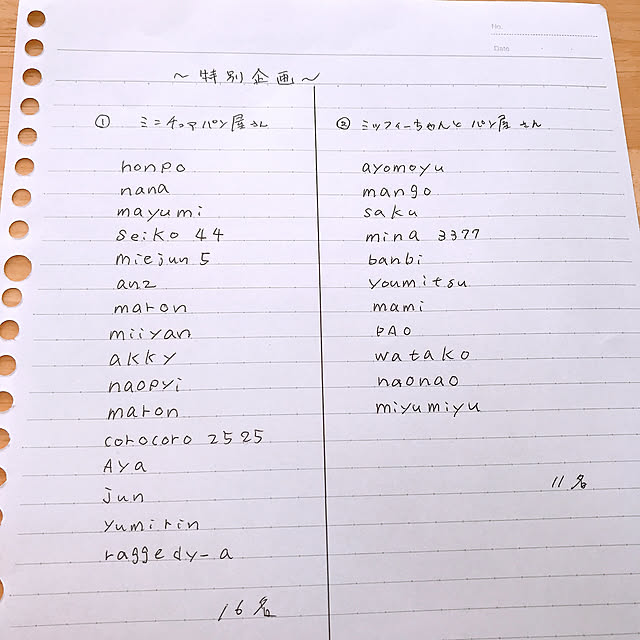 No.
Date
～特別企画～
① ミニチュアパン屋さん
honpo
nana
mayumi
seiko 44
miejun 5
anz
maron
miiyan
akky
naopyi
maron
corocoro 2525
Aya
jun
yumirin
raggedy-a
16名
② ミッフィーちゃんとパン屋さん
ayomoyu
mango
saku
mina 3377
banbi
youmitsu
mami
PAO
watako
naonao
miyumiyu
11名